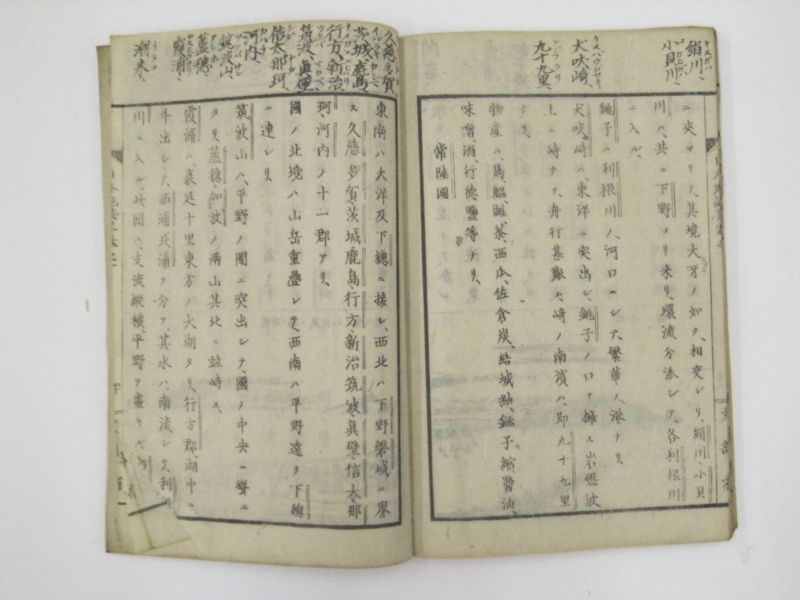 絹川、
小貝川、
犬吠崎
九十九里、
ニ夾マリ、其境犬牙ノ如ク、相交レリ、絹川小貝
川ハ、共ニ下野ヨリ来リ、環流分派シテ、各利根川
ニ入ル、
銚子ハ利根川ノ河口ニシテ、繁華ノ港ナリ
犬吠崎ハ、東洋ニ突出シ、銚子ノ口ヲ擁ス岩礁波
上ニ峙チ、舟行甚難シ、崎ノ南濱ハ、即九十九里
ナリ、
物産ハ、馬、鰮、鯡、茶、西瓜、佐倉炭、結城紬、銚子縮、醤油、
味噌、酒、行徳鹽等ナリ、
常陸國
久慈、多賀
茨城、鹿島
行方、新治
筑波、真壁
信太、那珂
河内、
筑波山、
蘆穂、
霞浦、
潮来、
東南ハ大洋及下總ニ接シ、西北ハ下野磐城ニ界
ス、久慈、多賀、茨城、鹿島、行方、新治、筑波、真壁、信太、那
珂、河内ノ十一郡アリ、
國ノ北境ハ山岳重疊シテ、西南ハ平野遠ク下總
ニ連レリ、
筑波山ハ、平野ノ間ニ突出シテ、國ノ中央ニ聳ニ
タリ、蘆穂、加波ノ両山其北ニ竝峙ス、
霞浦ハ、袤延十里東方ノ大湖タリ、行方郡、湖中ニ
斗出シ、西浦北浦ヲ分ツ、其水ハ、南流シテ利根
川ニ入ル、此間ハ、支流縱横、平野ヲ畫